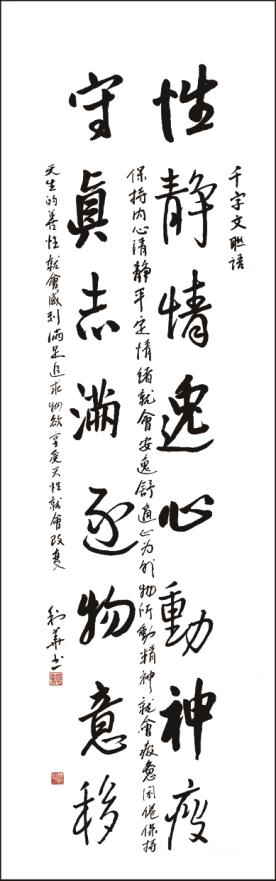 千字文聯語
性静情逸心動神疲
保持内心清静平定情緒就會安逸舒適心为外物所動精神就會疲惫困倦保持
守眞志滿逐物意移
天生的善性就會感到满足追求物欲享受天性就會改变
利華书